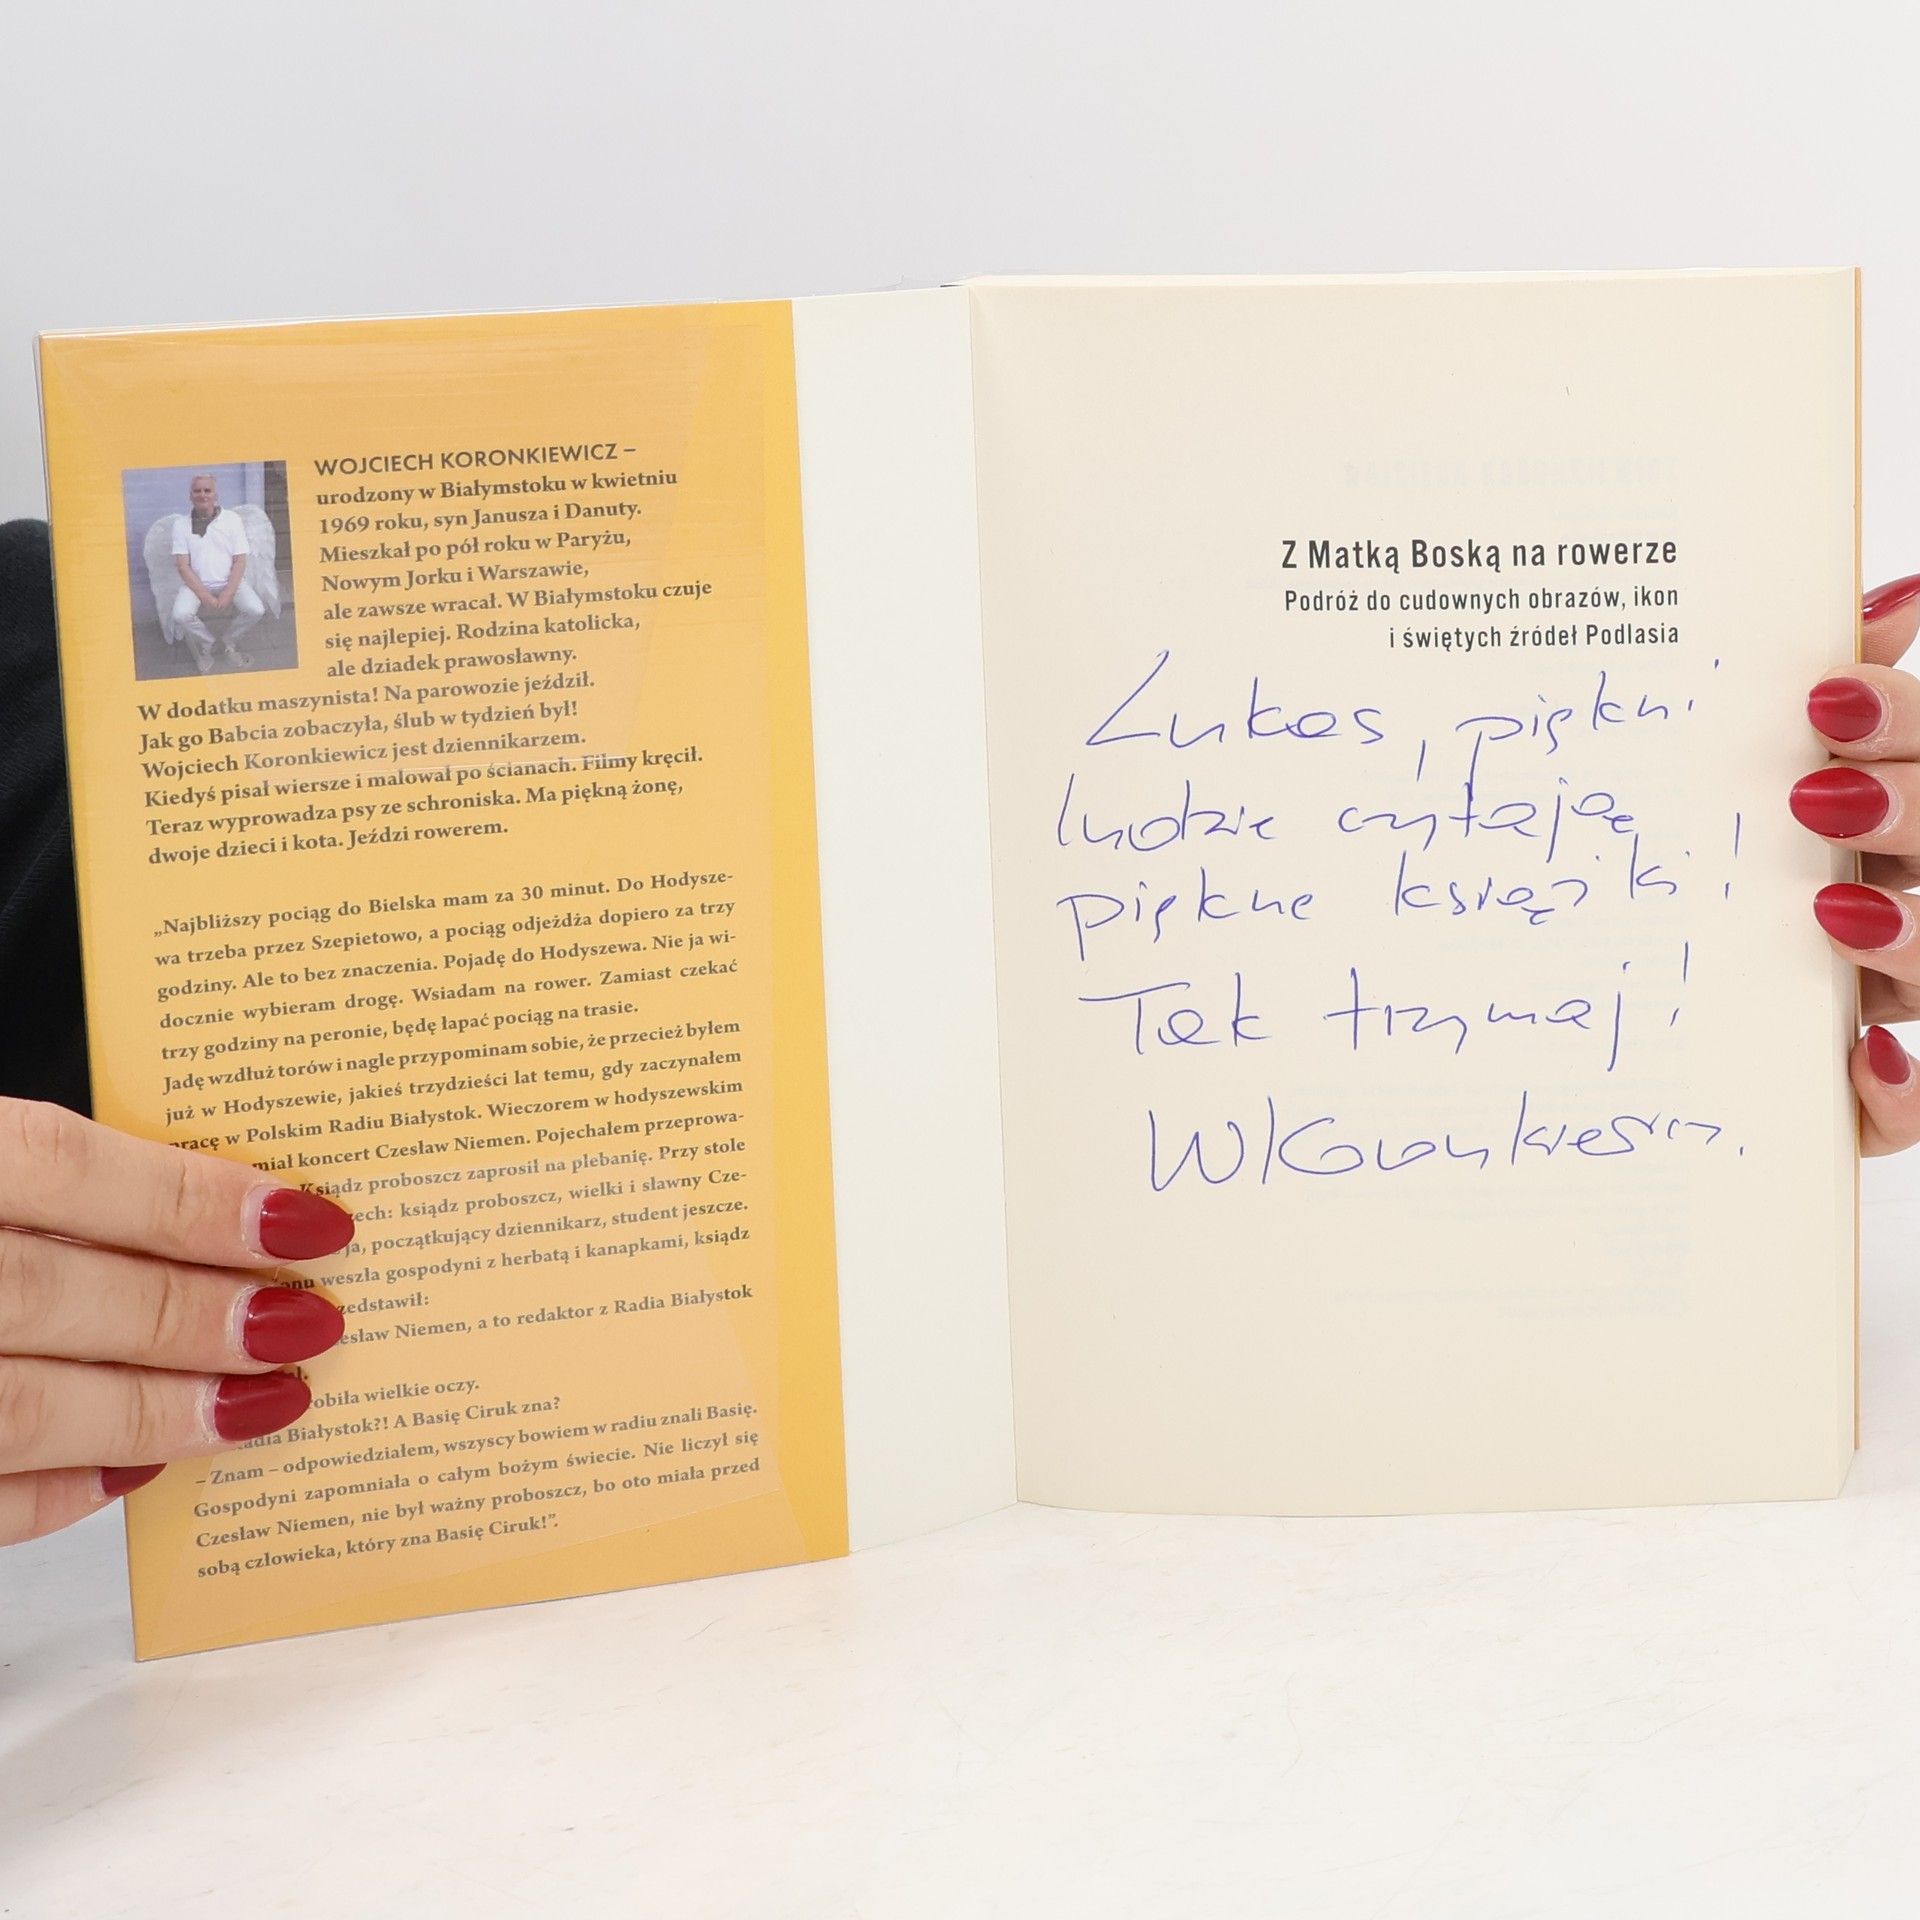 WOJCIECH KORONKIEWICZ –
urodzony w Białymstoku w kwietniu
1969 roku, syn Janusza i Danuty.
Mieszkał po pół roku w Paryżu,
Nowym Jorku i Warszawie,
ale zawsze wracał. W Białymstoku czuje
się najlepiej. Rodzina katolicka,
ale dziadek prawosławny.
W dodatku maszynista! Na parowozie jeździł.
Jak go Babcia zobaczyła, ślub w tydzień był!
Wojciech Koronkiewicz jest dziennikarzem.
Kiedyś pisał wiersze i malował po ścianach. Filmy kręcił.
Teraz wyprowadza psy ze schroniska. Ma piękną żonę,
dwoje dzieci i kota. Jeździ rowerem.
„Najbliższy pociąg do Bielska mam za 30 minut. Do Hodysze-
wa trzeba przez Szepietowo, a pociąg odjeżdża dopiero za trzy
godziny. Ale to bez znaczenia. Pojadę do Hodyszewa. Nie ja wi-
docznie wybieram drogę. Wsiadam na rower. Zamiast czekać
trzy godziny na peronie, będę łapać pociąg na trasie.
Jadę wzdłuż torów i nagle przypominam sobie, że przecież byłem
już w Hodyszewie, jakieś trzydzieści lat temu, gdy zaczynałem
pracę w Polskim Radiu Białystok. Wieczorem w hodyszewskim
miał koncert Czesław Niemen. Pojechałem przeprowa-
Ksiądz proboszcz zaprosił na plebanię. Przy stole
ksiądz proboszcz, wielki i sławny Cze-
ja, początkujący dziennikarz, student jeszcze.
weszła gospodyni z herbatą i kanapkami, ksiądz
Niemen, a to redaktor z Radia Białystok
wielkie oczy.
Białystok?! A Basię Ciruk zna?
– Znam – odpowiedziałem, wszyscy bowiem w radiu znali Basię.
Gospodyni zapomniała o całym bożym świecie. Nie liczył się
Czesław Niemen, nie był ważny proboszcz, bo oto miała przed
sobą człowieka, który zna Basię Ciruk!”.
Z Matką Boską na rowerze
Podróż do cudownych obrazów, ikon
i świętych źródeł Podlasia
Lukas, piękni
ludzie czytają
piękne książki!
Tak trzymaj!
WKoronkiewicz.